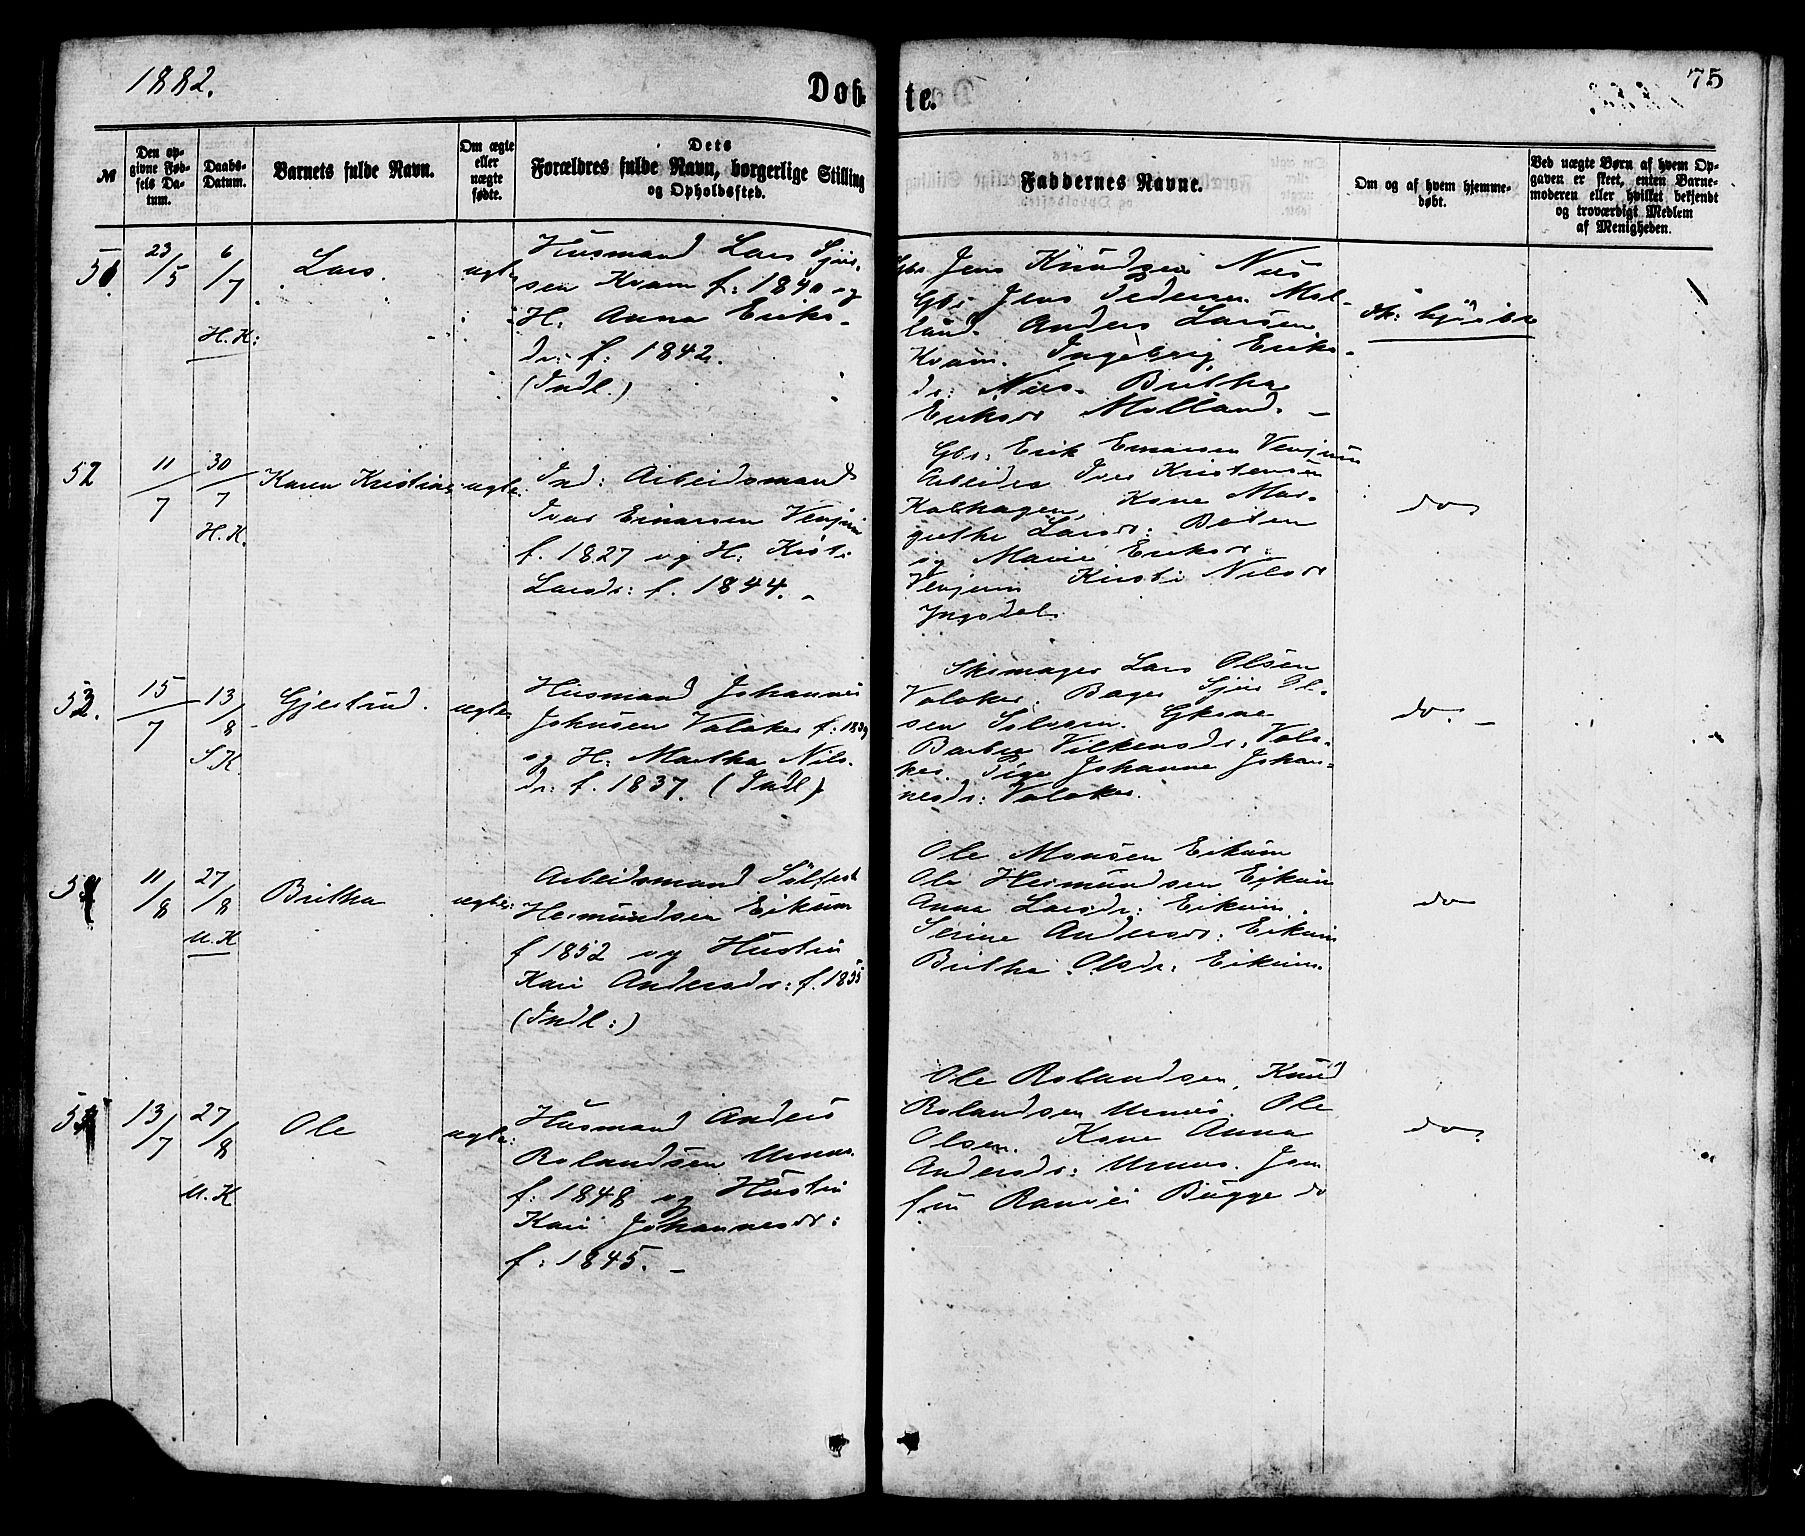 1882.
Døbte.
75
№
Den opgivne Fødsels Datum.
Daabs-Datum.
Barnets fulde Navn.
Om ægte eller uægte fødte.
Dets Forældres fulde Navn, borgerlige Stilling og Opholdssted.
Faddernes Navne.
Om og af hvem hjemmedøbt.
Ved uægte Børn af hvem Opgaven er skeet, enten Barnemoderen eller hvilket bekjendt og troværdigt Medlem af Menigheden.
51. 23/5 6/7 H. K: Lars. ægte
Husmand Lars Sjur-
sen Kvam f: 1840 og
H: Anna Eriks-
dr: f: 1842.
(Indl.)
Gbr Jens Knudsen Næs
Gbr Jens Pedersen Mol-
land. Anders Larsen
Kvam. Ingebrig Eriks-
dr: Næs. Britha
Eriksdr Molland. -
52 11/7 30/7 H. K. Karen Kristine ægte
Ind: Arbeidsmand
Ivar Einarsen Venjum
f. 1827 og H. Kirsti
Larsdr: f. 1844. -
Gbr: Erik Einarsen Venjum
Arbeider Iver Kristensen
Kalhagen, Kone Mar-
grethe Larsdr:
og Marie Eriksdr:
Venjum Kirsti Nilsdr
Yngsdal.
do
53. 15/7 13/8 S. K. Gjertrud. ægte
Husmand Johannes
Johnsen Valaker f: 1839
og H. Martha Nils-
dr: f. 1837. (Indl)
Skomager Lars Olsen
Valaker. Bager Sjur Ol-
sen Solvorn. Gkone
Barbra Vilkensdr: Vala-
ker. Pige Johanne Johan-
nesdr: Valaker.
do. -
54 11/8 27/8 U. K Britha ægte:
Arbeidsmand Sølfest
Hermundsen Eikum
f 1852 og Hustru
Kari Andersdr: f. 1855
(Indl:)
Ole Monsen Eikum
Ole Hermundsen Eikum
Anna Larsdr: Eikum.
Serine Andersdr: Eikum
Britha Olsdr: Eikum.
do
55 13/7 27/8 U. K Ole ægte:
Husmand Anders
Rolandsen Urnes
f: 1848 og Hustru
Kari Johannesdr:
f: 1845. -
Ole Rolandsen, Knud
Rolandsen Urnes. Ole
Olsen. Kone Anna
Andersdr: Urnes. Jom
fru Ranvei Bugge do
do